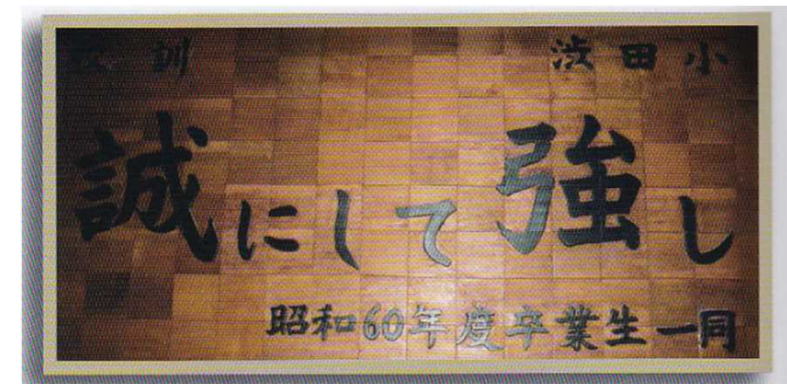 校訓　渋田小
誠にして強し
昭和60年度卒業生一同